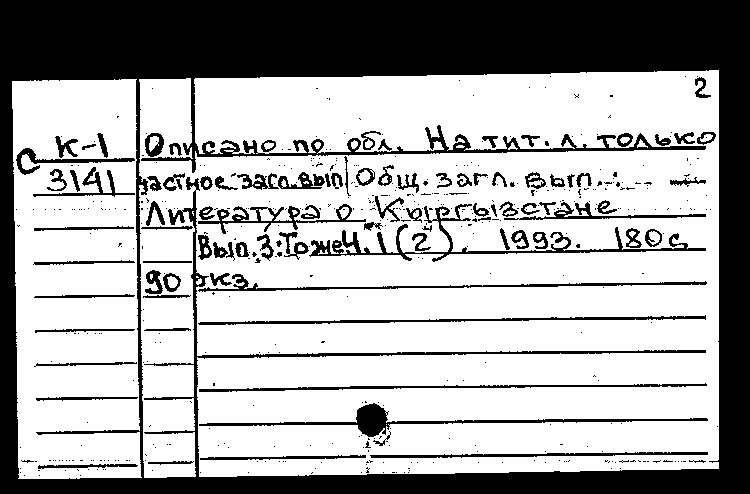 2
К-1 Описано по обл. На тит. л. только
С 3141 частное загл. вып. Общ. загл. вып.:
Литература о Кыргызстане
Вып.3: То же Ч.1(2). 1993. 180с
90 экз.